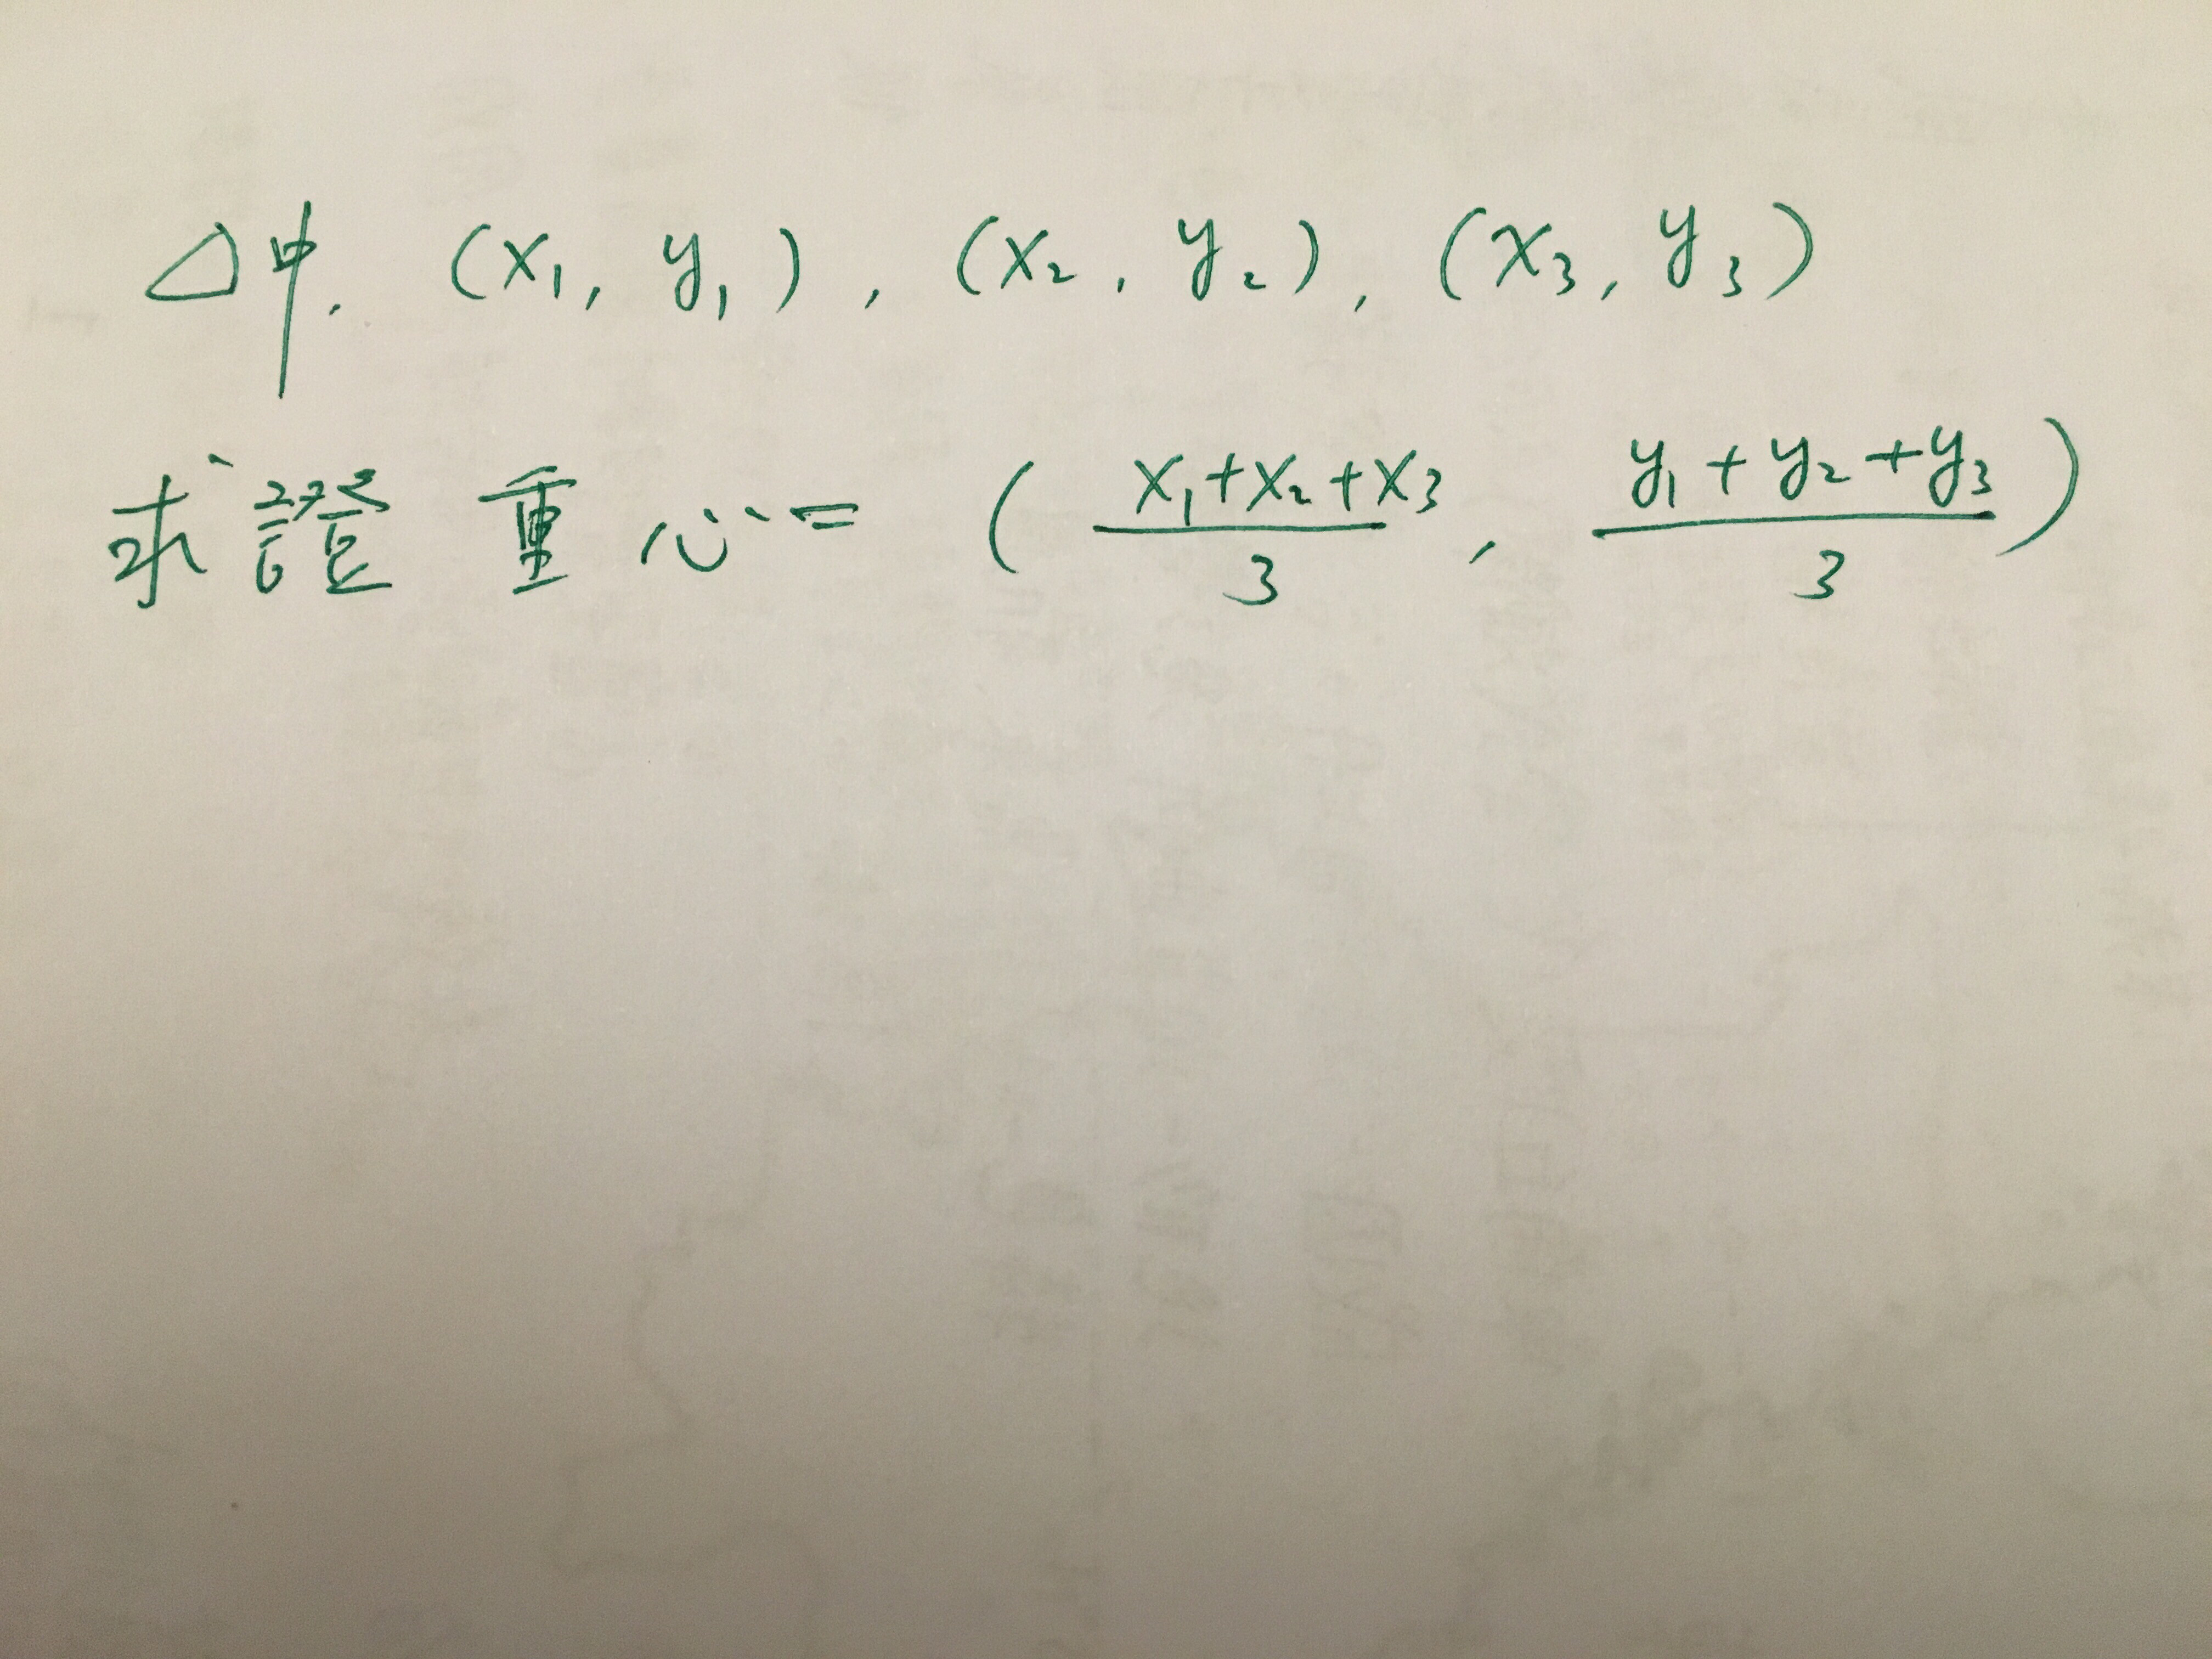 △中, (x₁, y₁), (x₂, y₂), (x₃, y₃)
求證 重心 = ( (x₁+x₂+x₃)/3 , (y₁+y₂+y₃)/3 )